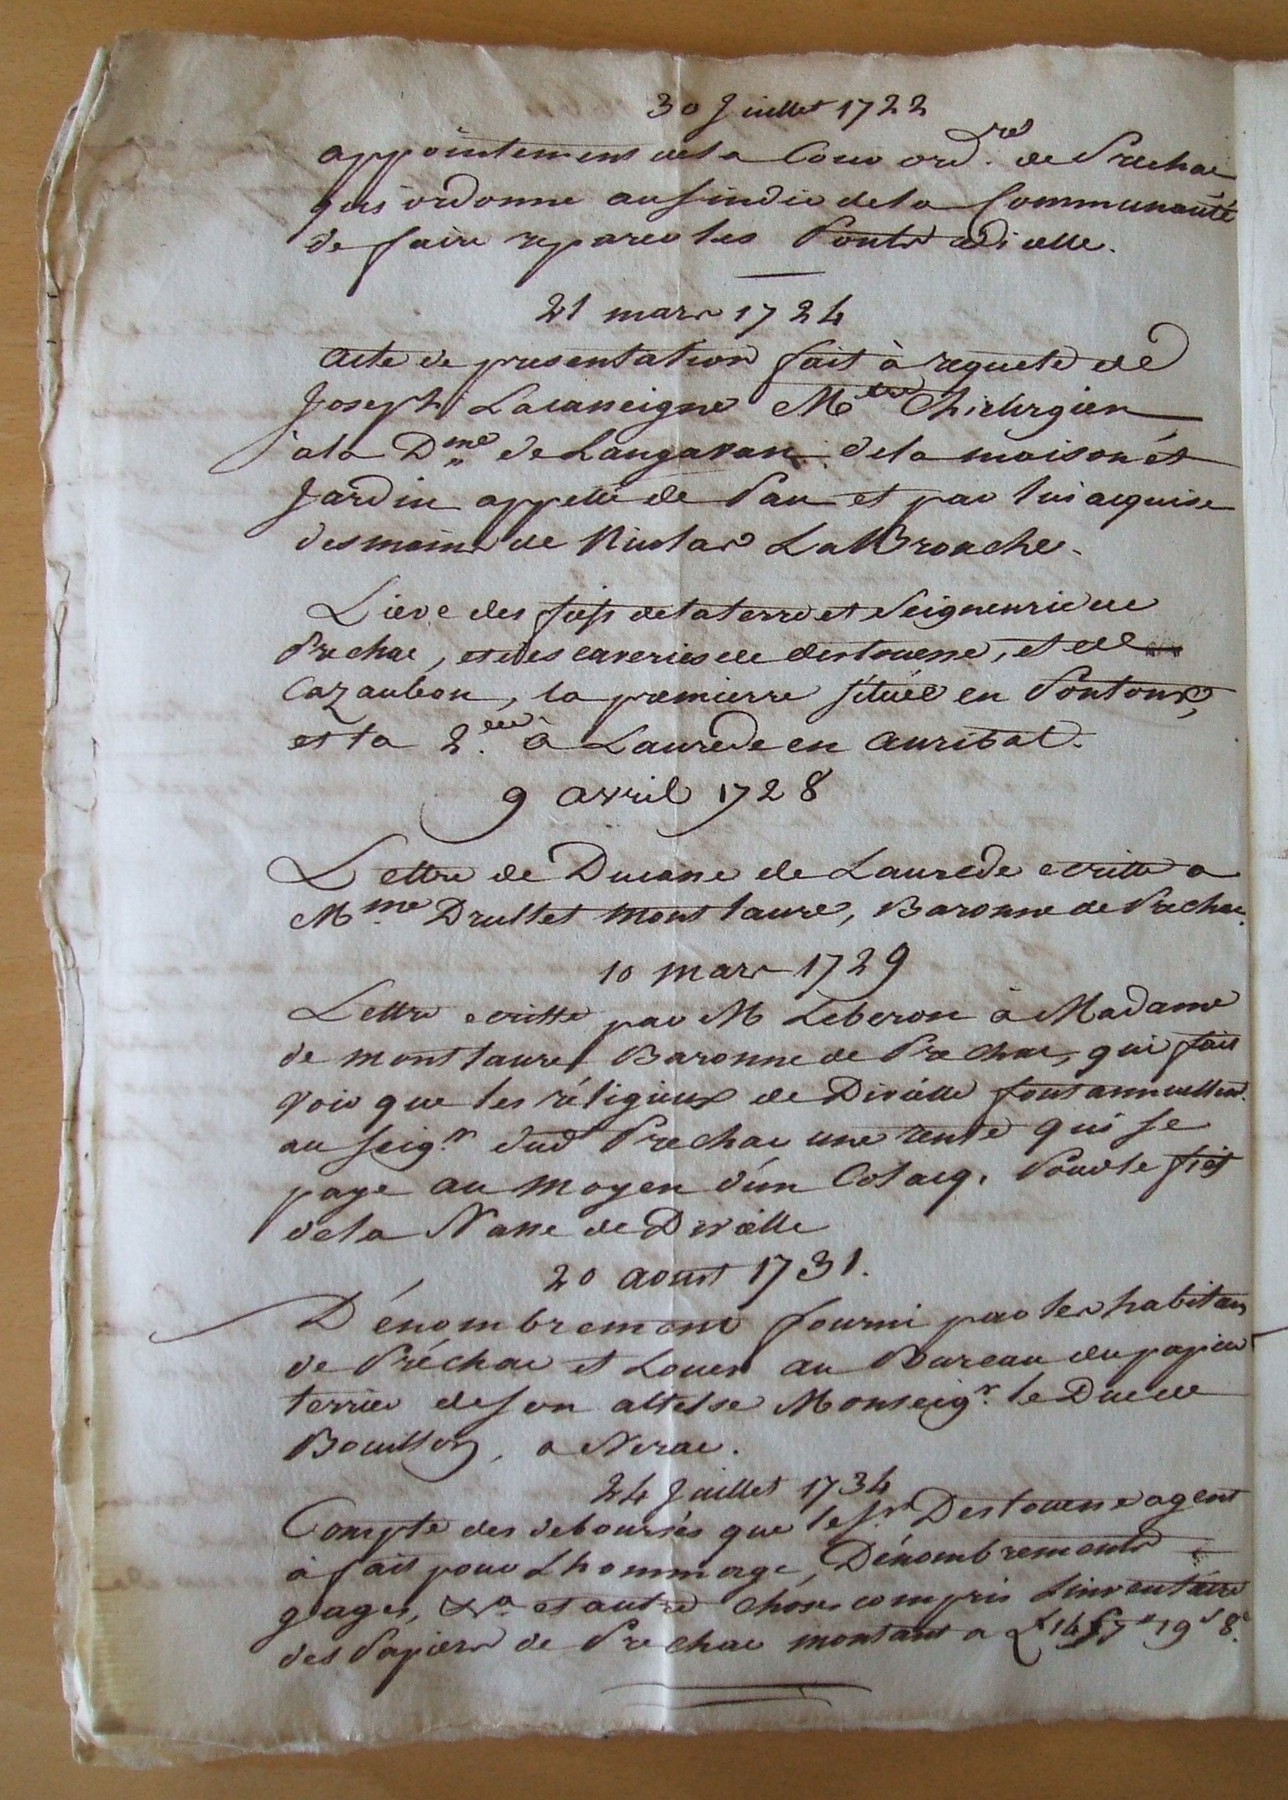 30 Juillet 1722
appointement de la Cour ord.re de Prechac
qui ordonne au sindic de la Communauté
de faire reparer les Ponts d'icelle.
21 mars 1724
acte de presentation fait à requete de
Joseph Lacaneigne Mtre Chirurgien
à la Dme de Langavan de la maison et
Jardin appellé de Pau et par lui acquise
des mains de Nicolas LaBrouche.
Lieve des fiefs de la terre et Seigneurie de
Prechac, et des caveries de destouesse, et de
Cazaubon, la premierre située en Pontonx,
et la 2.eme à Laurede en auribat.
9 avril 1728
Lettre de Ducasse de Laurede ecritte a
Mme Drullet montlaure, Baronne de Prechac.
10 mars 1729
Lettre ecritte par M Leberon à Madame
de montlaure Baronne de Prechac, qui fait
voir que les réligieux de Divielle font annuellemt
au seigr. dud Prechac une rente qui se
paye au moyen d'un Colacq. Pour le fief
de la Nasse de Divielle
20 aoust 1731.
Dénombrement fourni par les habitans
de Préchac et Louer au Bureau du papier
terrier de son altesse Monseigr. le Duc de
Bouillon, a Nerac.
24 Juillet 1734
Compte des deboursés que le sr. Destouesse agent
à fait pour Lhommage, Dénombrements
gages, &a et autre choses compris Linventaire
des Papiers de Prechac montant a 19s 8d.